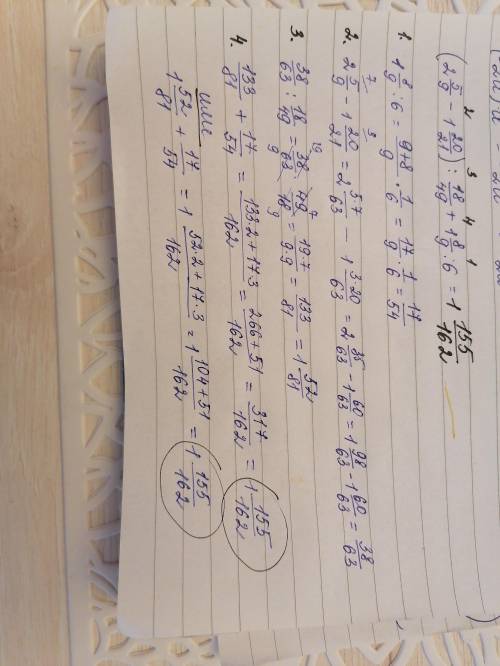 (2 5/9 - 1 20/21) : 18/49 + 1 8/9 : 6 = 1 155/162
1. 1 8/9 : 6 = 9+8/9 · 1/6 = 17/9 · 1/6 = 17/54
2. 2 5/9 - 1 20/21 = 2 5·7/63 - 1 3·20/63 = 2 35/63 - 1 60/63 = 1 98/63 - 1 60/63 = 38/63
3. 38/63 : 18/49 = 38/63 · 49/18 = 19·7/9·9 = 133/81 = 1 52/81
4. 133/81 + 17/54 = 133·2+17·3/162 = 266+51/162 = 317/162 = 1 155/162
или
1 52/81 + 17/54 = 1 52·2+17·3/162 = 1 104+51/162 = 1 155/162